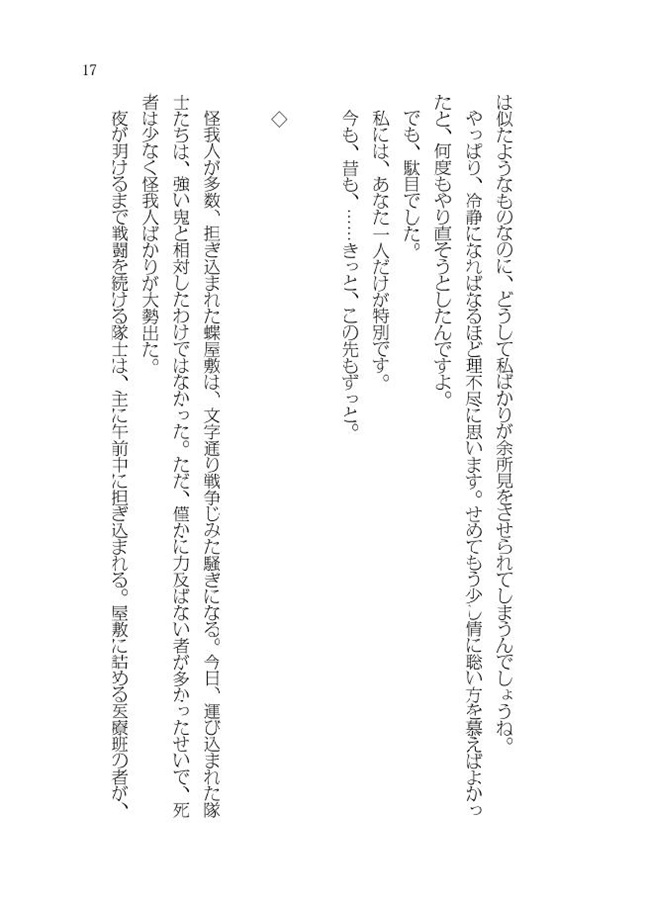 17
は似たようなものなのに、どうして私ばかりが余所見をさせられてしまうんでしょうね。
やっぱり、冷静になればなるほど理不尽に思います。せめてもう少し情に聡い方を慕えばよかっ
たと、何度もやり直そうとしたんですよ。
でも、駄目でした。
私には、あなた一人だけが特別です。
今も、昔も、……きっと、この先もずっと。
◇
怪我人が多数、担ぎ込まれた蝶屋敷は、文字通り戦争じみた騒ぎになる。今日、運び込まれた隊
士たちは、強い鬼と相対したわけではなかった。ただ、僅かに力及ばない者が多かったせいで、死
者は少なく怪我人ばかりが大勢出た。
夜が明けるまで戦闘を続ける隊士は、主に午前中に担ぎ込まれる。屋敷に詰める医療班の者が、